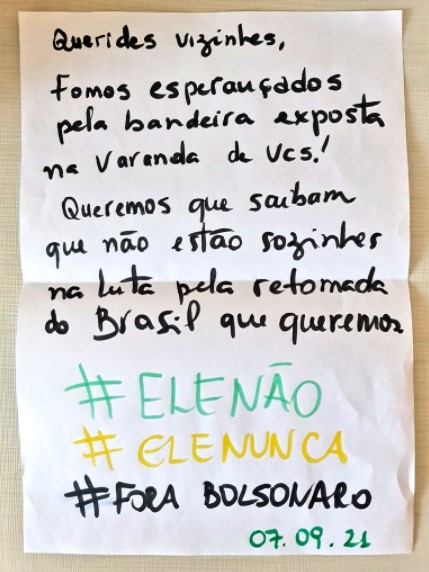 Querides vizinhes,
Fomos esperançados
pela bandeira exposta
na varanda de vcs!
Queremos que saibam
que não estão sozinhes
na luta pela retomada
do Brasil que queremos
#ELENÃO
#ELENUNCA
#FORA BOLSONARO
07.09.21